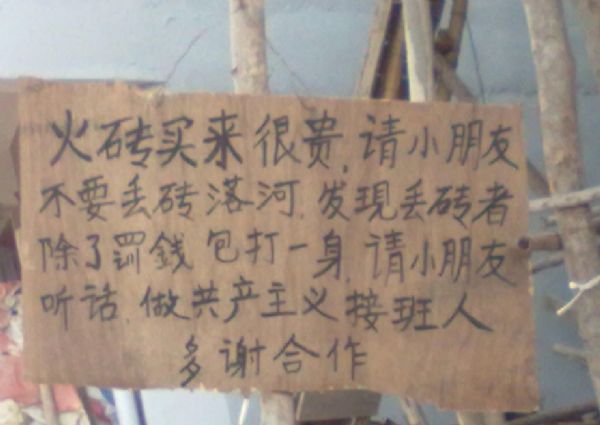 火砖买来很贵,请小朋友
不要丢砖落河.发现丢砖者
除了罰錢包打一身,请小朋友
听话.做共产主义接班人
多谢合作